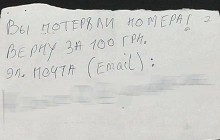 ВЫ ПОТЕРЯЛИ НОМЕРА!
ВЕРНУ ЗА 100 ГРН.
ЭЛ. ПОЧТА (EMAIL):